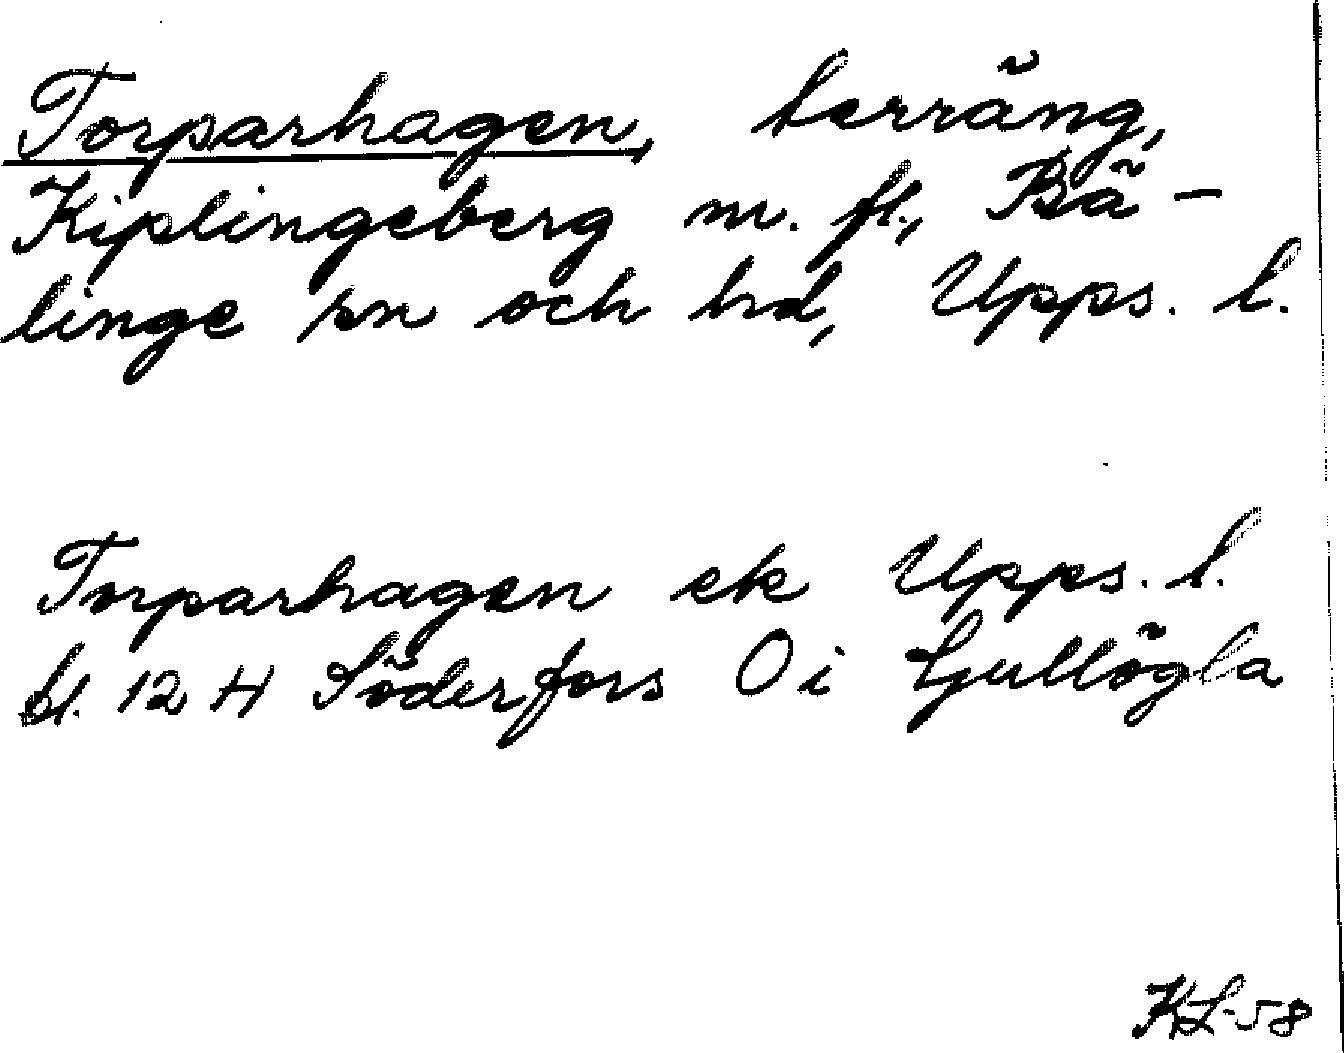 Torparhagen, terräng,
Kiplingeberg m. fl., Bä-
linge sn och hd, Upps. l.
Torparhagen ek Upps. l.
bl. 12 H Söderfors O i Ljullögla
KL-58